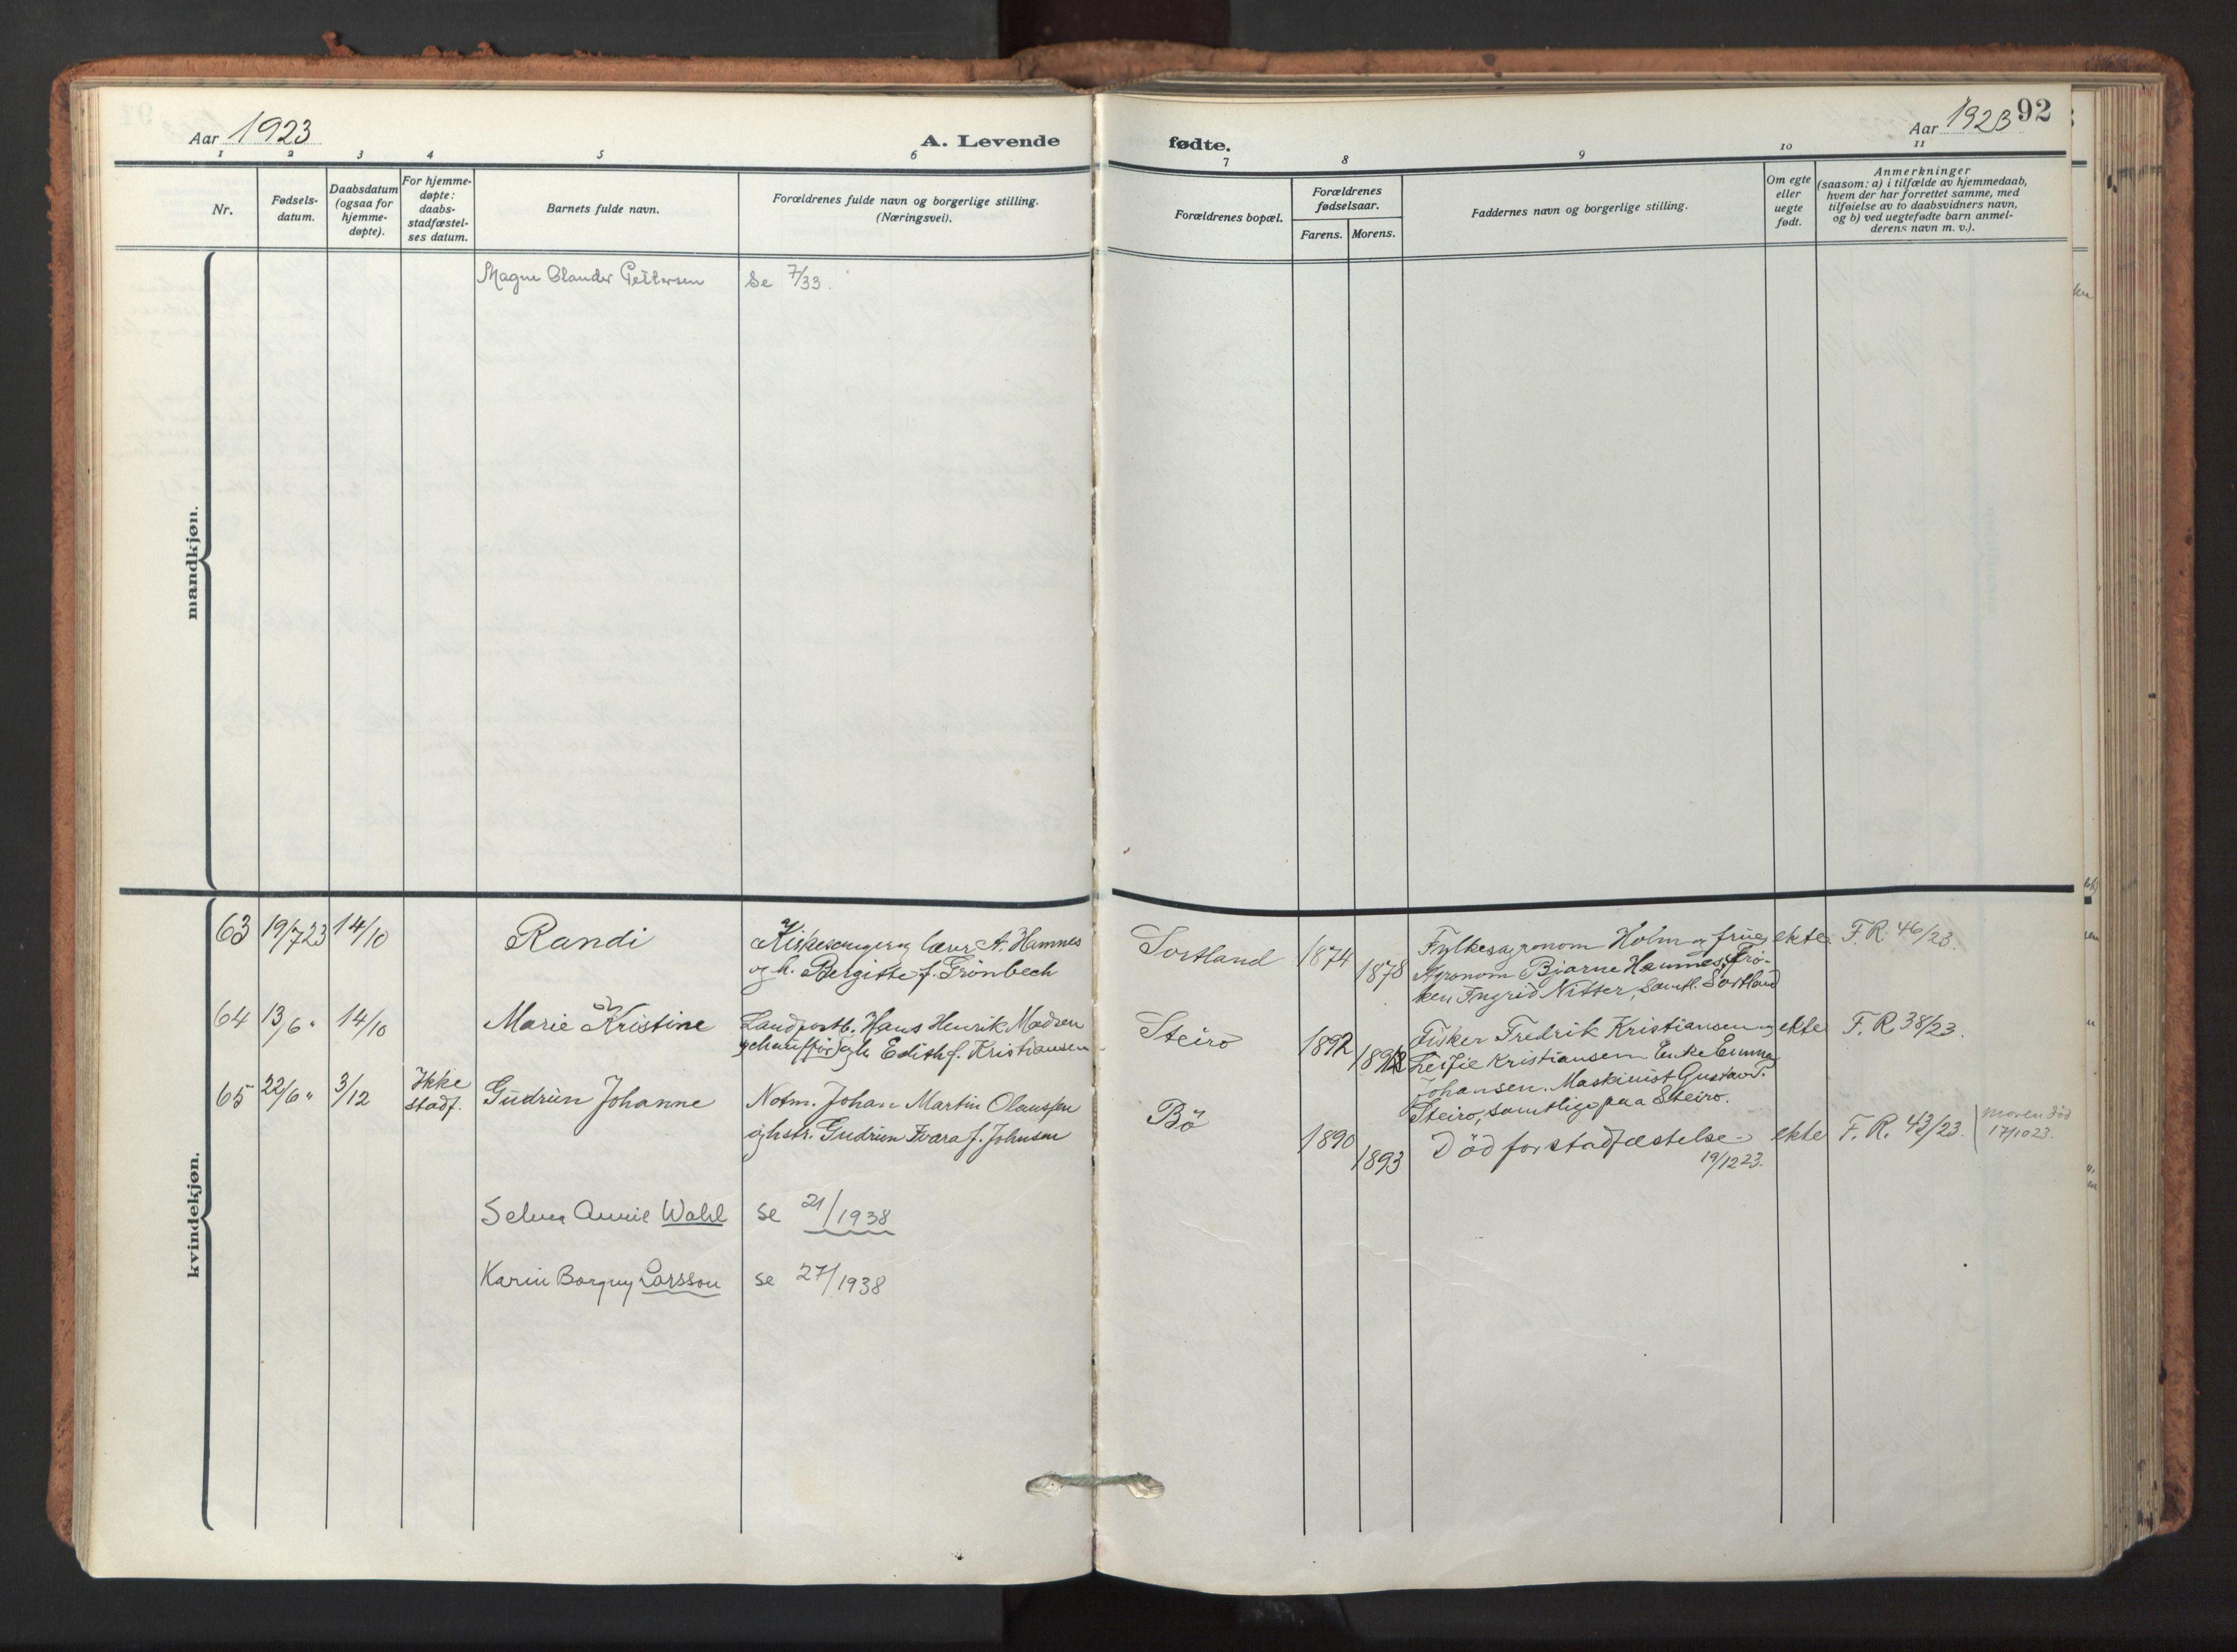 Aar 1923
A. Levende
fødte.
Aar 1923
92
1 2 3 4 5 6 7 8 9 10 11
Nr.
Fødsels-
datum.
Daabsdatum
(ogsaa for
hjemme-
døpte).
For hjemme-
døpte:
daabs-
stadfæstel-
ses datum.
Barnets fulde navn.
Forældrenes fulde navn og borgerlige stilling.
(Næringsvei).
Forældrenes bopæl.
Forældrenes
fødselsaar.
Farens. Morens.
Faddernes navn og borgerlige stilling.
Om egte
eller
uegte
født.
Anmerkninger
(saasom: a) i tilfælde av hjemmedaab,
hvem der har forrettet samme, med
tilføielse av to daabsvidners navn,
og b) ved uegtefødte barn anmel-
derens navn m. v.).
mandkjøn.
Magne Olander Pettersen
Se 7/33.
kvindekjøn.
63 19/7 23 14/10
Randi
Kirkesanger og lærer A. Hamnes
og h. Bergitte f. Grönbech
Sortland
1874
1878
Fylkesagronom Holm og frue,
Agronom Bjarne Hamnes, Frö-
ken Ingrid Nitter, samtl. Sortland
ekte
F. R. 46/23.
64 13/6 " 14/10
Marie Kristine
Landpostb. Hans Henrik Madsen
(chauffør) og h. Edith f. Kristiansen
Steiro
1892
Fisker Fredrik Kristiansen og
Kristiansen Enke Emma
Johansen. Maskinist Gustav T.
Steiro, samtlige paa Steiro.
ekte
F. R. 38/23.
65 22/6 " 3/12
Ikke
stadf.
Gudrun Johanne
Notm. Johan Martin Olaussen
og hstr. Gudrun Ivara f. Johnsen
Bö
1890
1893
Död for stadfæstelse
19/12 23.
ekte
F. R. 43/23.
moren død
17/10 23.
Selma Annie Wahl
se 21/1938
Karin Borgny Larsson
se 27/1938